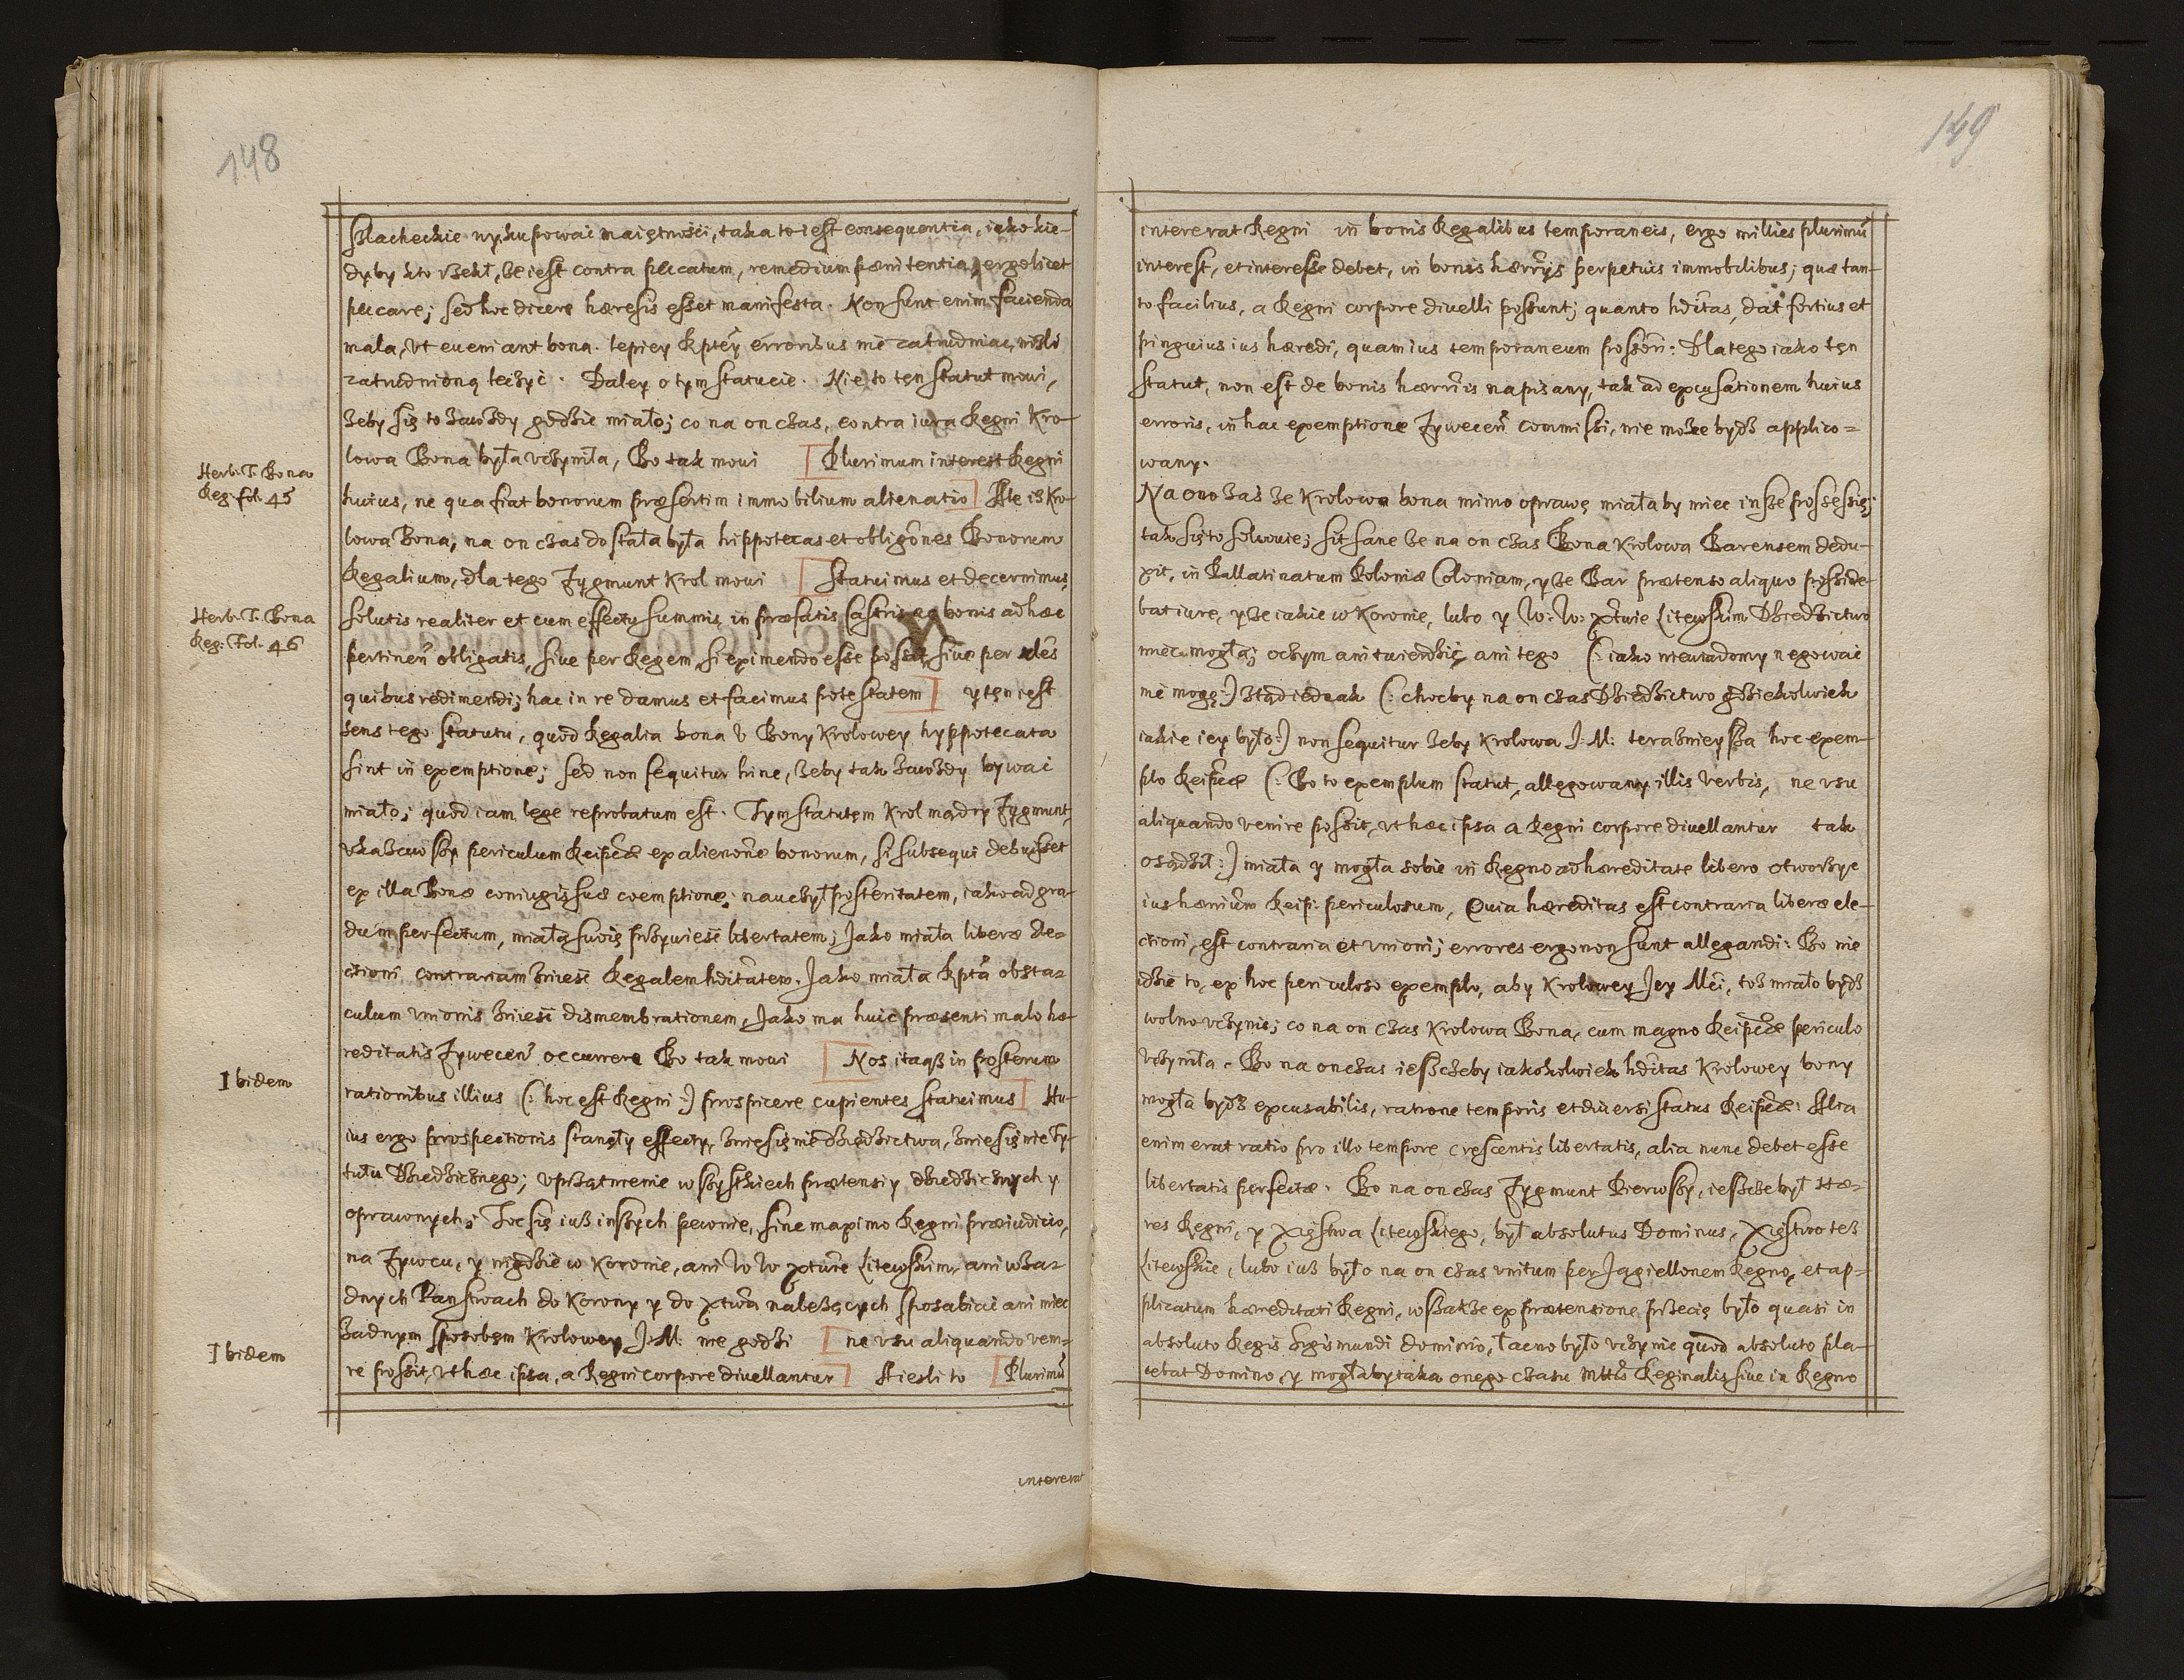 148
Szlacheckie wykupowac maiętności, taka to iest consequentia, iako kie-
dyby kto rzekł, że iest contra peccatum, remedium pænitentia, ergo licet
peccare; sed hoc dicere hæresis esset manifesta. Non sunt enim facienda
mala, vt eueniant bona. lepiey Rptéy erroribus nie zatrudniac, niżli
zatrudnioną leczyć. Daley o tym statucie. Nie to ten statut mowi,
żeby się to zawżdy gdzie miało; co na on czas, contra iura Regni Kro-
lowa Bona była vczyniła, Bo tak mowi [Plurimum interest Regni
Herb. T. Bona
Reg. fol. 45
huius, ne qua fiat bonorum præsertim immobilium alienatio] Ale iż Kro-
lowa Bona, na on czas dostała była hippotecas et obligões Bonorum
Regalium, dla tego Zygmunt Krol mowi [Statuimus et decernimus,
Herb. T. Bona
Reg: Fol. 46
solutis realiter et cum effectu summis, in præfatis Castris ac bonis ad hæc
pertineñ obligatis, siue per Regem, si eximendo esse possit, siue per eles
quibus redimendi; hac in re damus et facimus potestatem] y ten iest
sens tego statutu, quod Regalia bona v Bony Krolowey hyppotecata
sint in exemptione; sed non sequitur hinc, żeby tak zawżdy bywać
miało; quod iam lege reprobatum est. Tym statutem Krol mądry Zygmunt,
vkazawszy periculum Reipcæ ex alienone bonorum, si subsequi debuisset
ex illa Bonæ coniugis suæ coemptione; nauczył posteritatem, iako ad gra-
dum perfectum, miała swoię przywieść libertatem; Jako miała liberæ ele-
ctioni contrariam znieść Regalem hditatem. Jako miała Rpta obsta-
culum vnionis znieść dismembrationem, Jako ma huic præsenti malo hæ-
reditatis Zywecen occurrere Bo tak mowi [Nos itaqz in posterum
Ibidem
rationibus illius (: hoc est Regni :) prospicere cupientes statuimus] Hu-
ius ergo prospectionis stanęły effecty, zniesienie dziedzictwa, zniesienie Ty-
tułu Dziedzicznego; vprzątnienie wszystkiech prætensiy dziedzicznych y
oprawnych; Toć się iuż inszych pewnie, sine maximo Regni præiudicio,
na Zywcu, y nigdzie w Koronie, ani W W xtwie Litewskim, ani w ża-
dnych Panstwach do Korony y do xtwa należących sposabiać ani mieć
żadnym sposobem Krolowey J. M. nie godzi [ne vsu aliquando veni-
Ibidem
re possit, vt hæc ipsa, a Regni corpore diuellantur] A iesli to [Plurimũ
intererat
149
intererat Regni in bonis Regalibus temporaneis, ergo millies plurimũ
interest, et interesse debet, in bonis hærrijs perpetuis immobilibus; quæ tan-
to facilius, a Regni corpore diuelli possunt; quanto hditas, dat fortius et
pinguius ius hæredi, quam ius temporaneum possori: Dla tego iako ten
statut, non est de bonis hærriis napisany, tak ad excusationem huius
erroris, in hac exemptione Zywecen commissi, nie może bydz applico-
wany.
Na ono zaś że Krolowa bona mimo oprawę miała by miec insze possessię;
tak się to solwuie; sit sane że na on czas Bona Krolowa Barensem dedu-
xit, in Pallatinatum Poloniæ Coloniam, y że Bar prætenso aliquo posside-
bat iure, y że iakie w Koronie, lubo y W: W: xtwie Litewskim Dziedzictwo
miec mogła; o czym ani twierdzię ani tego (: iako niewiadomy negowac
nie mogę :) ztąd iednak (: chocby na on czas Dziedzictwo gdziekolwiek
iakie iey było :) non sequitur żeby Krolowa J: M: teraznieysza hoc exem-
plo Reipcæ (: Bo to exemplum statut, allegowany illis verbis, ne vsu
aliquando venire possit, vt hæc ipsa a Regni corpore diuellantur tak
osądził :) miała y mogła sobie in Regno ad hæreditate libero otworzyc
ius hærrium Reip: periculosum, Quia hæreditas est contraria liberæ ele-
ctioni, est contraria et vnioni; errores ergo non sunt allegandi: Bo nie
idzie to, ex hoc periculoso exemplo, aby Krolowey Jey Mci, toż miało bydz
wolno vczynić; co na on czas Krolowa Bona, cum magno Reipcæ periculo
vczyniła. Bo na on czas ieszczeby iakokolwiek hditas Krolowey bony
mogła bydz excusabilis, ratione temporis et diuersi status Reipcæ: Alia
enim erat ratio pro illo tempore crescentis libertatis, alia nunc debet esse
libertatis perfectæ. Bo na on czas Zygmunt Pierwszy, ieszcze był Hæ-
res Regni, y Xięstwa Litewskiego, był absolutus Dominus, Xięstwo też
Litewskie, lubo iuż było na on czas vnitum per Jagiellonem Regno, et ap-
plicatum hæreditati Regni, wszakże ex prætensione przecię było quasi in
absoluto Regis Sigismundi dominio, łacno było vczynić quod absoluto pla-
cebat Domino, y mogłaby taka onego czasu Mttis Reginalis siue in Regno